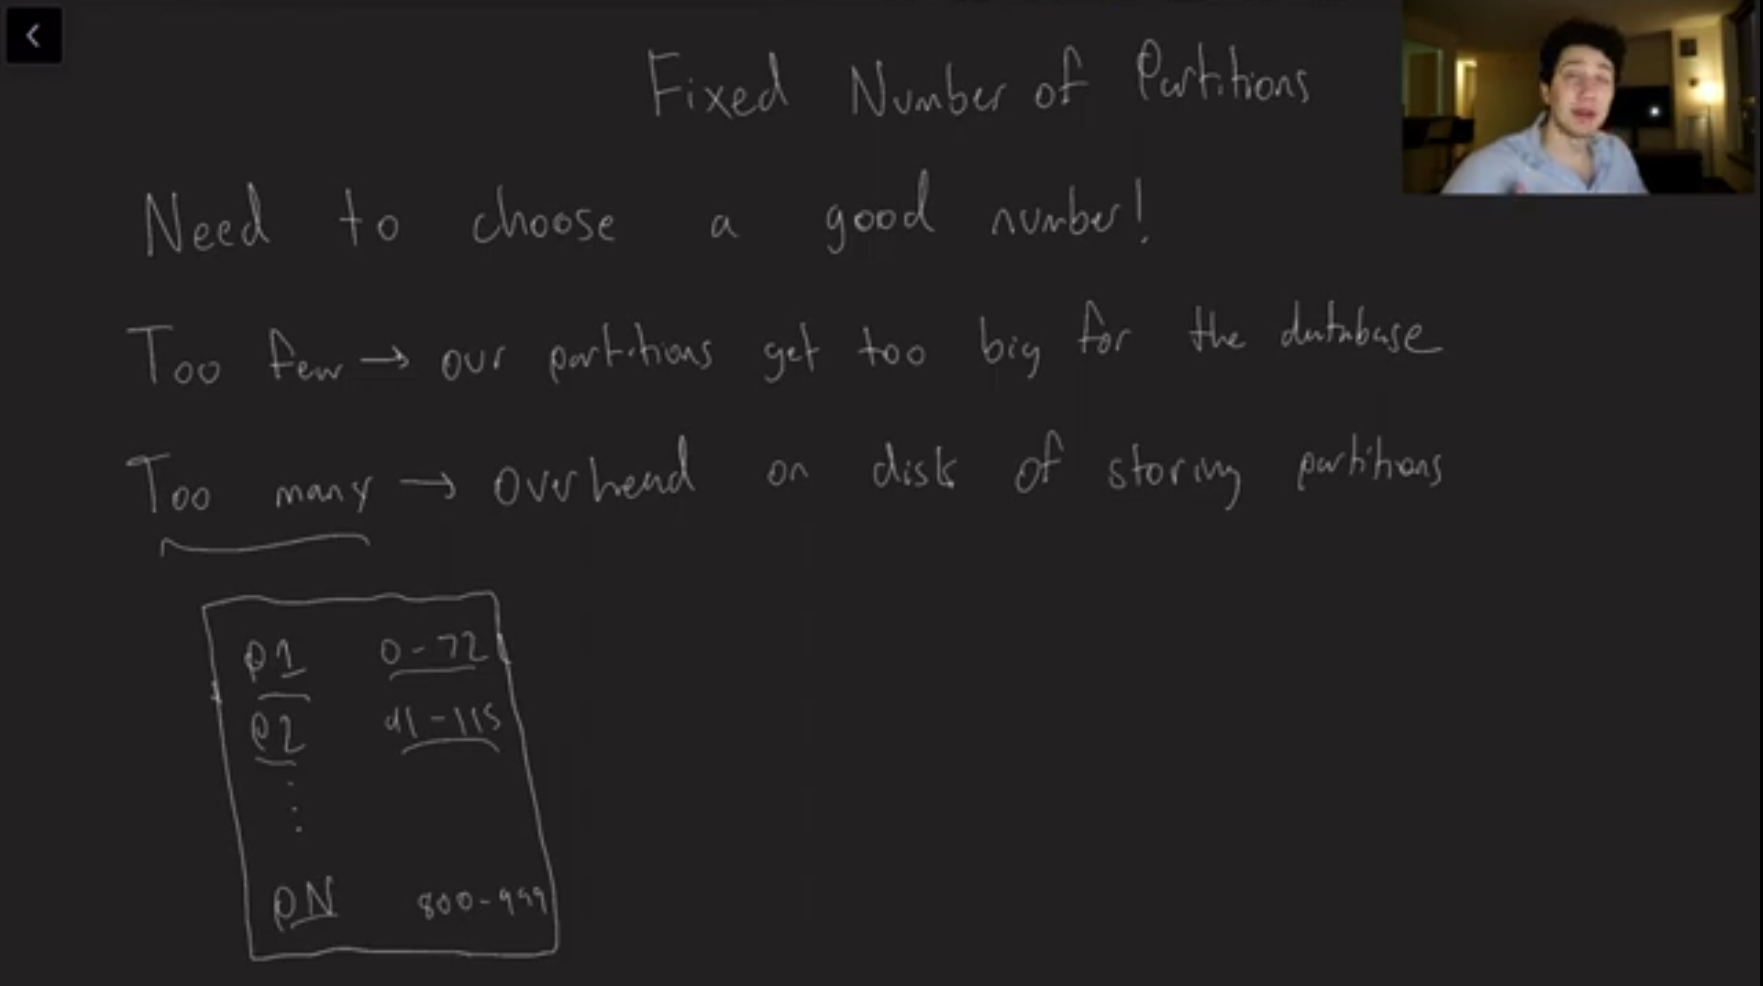 Fixed Number of Partitions
Need to choose a good number!
Too few → our partitions get too big for the database
Too many → overhead on disk of storing partitions
P1 0-72
P2 91-115
PN 800-999